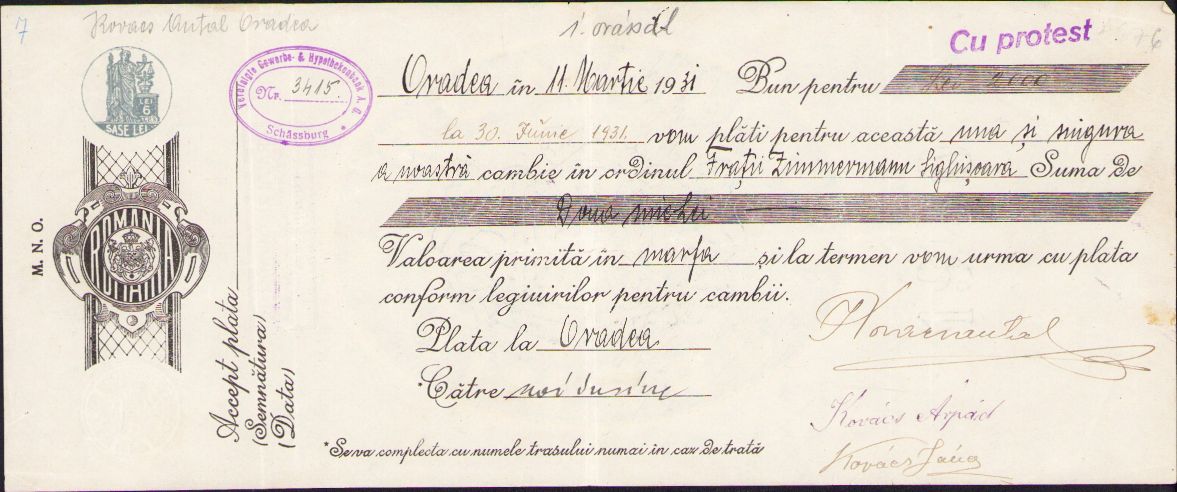 7
Kovacs Antal Oradea
Cu protest
LEI
6
SASE LEI
Vereinigte Gewerbe- & Hypothekenbank A. G.
Nr. 3415.
Schässburg
M. N. O.
ROMANIA
ROMANIA
Accept plata
(Semnătura)
(Data)
Oradea în 11 Martie 1931 Bun pentru Lei 2000
la 30. Junie 1931. vom plăti pentru această una și singura
a noastră cambie în ordinul Frații Zimmermann Sighișoara Suma de
Doua mii lei
Valoarea primită în marfa și la termen vom urma cu plata
conform legiuirilor pentru cambii.
Plata la Oradea
*Către noi
Kovacs Antal
Kovács Árpád
Kovács
*Se va complecta cu numele trasului numai in caz de trată